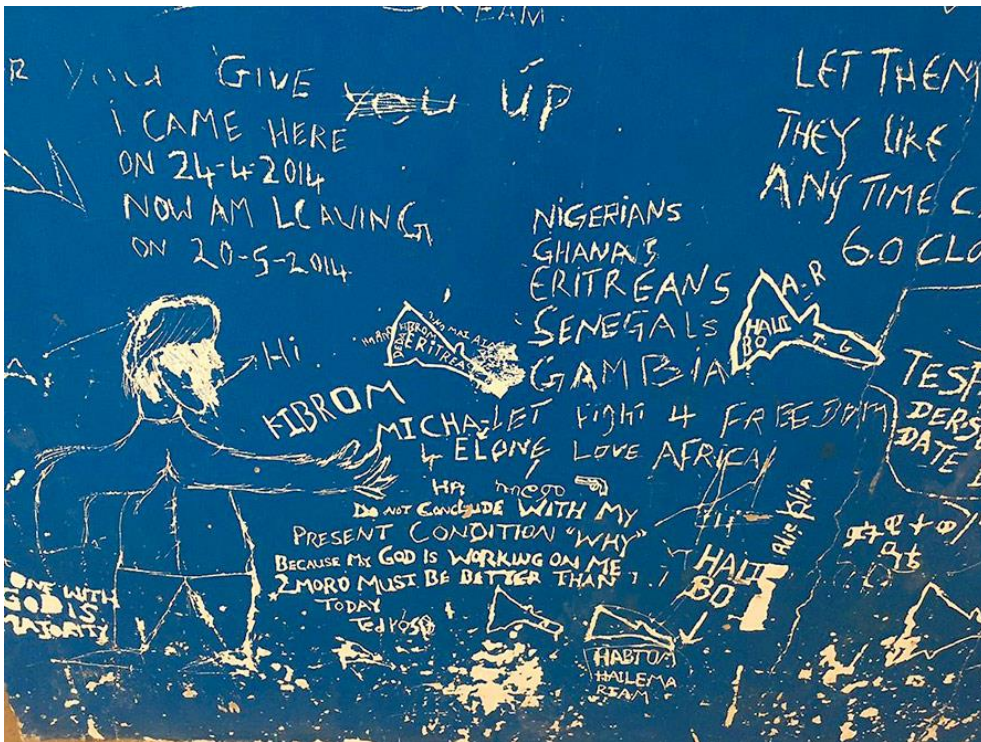 DREAM.
GIVE YOU UP
I CAME HERE
ON 24-4-2014
NOW AM LEAVING
ON 20-5-2014
LET THEM
THEY LIKE
ANY TIME
6.0 CLO
NIGERIANS
GHANA'S
ERITREANS
SENEGALS
GAMBIA
A-R
HALI
BO T-G
Hi
ERITREA
FIBROM
MICHA-LET Fight 4 FREEDOM
LOVE AFRICA
DO NOT CONCLUDE WITH MY
PRESENT CONDITION "WHY"
BECAUSE MY GOD IS WORKING ON ME
2MORO MUST BE BETTER THAN
TODAY
HALI
BO
ONE WITH
GOD IS
MAJORITY
DATE
HABTOM
HAILEMA
RIAM